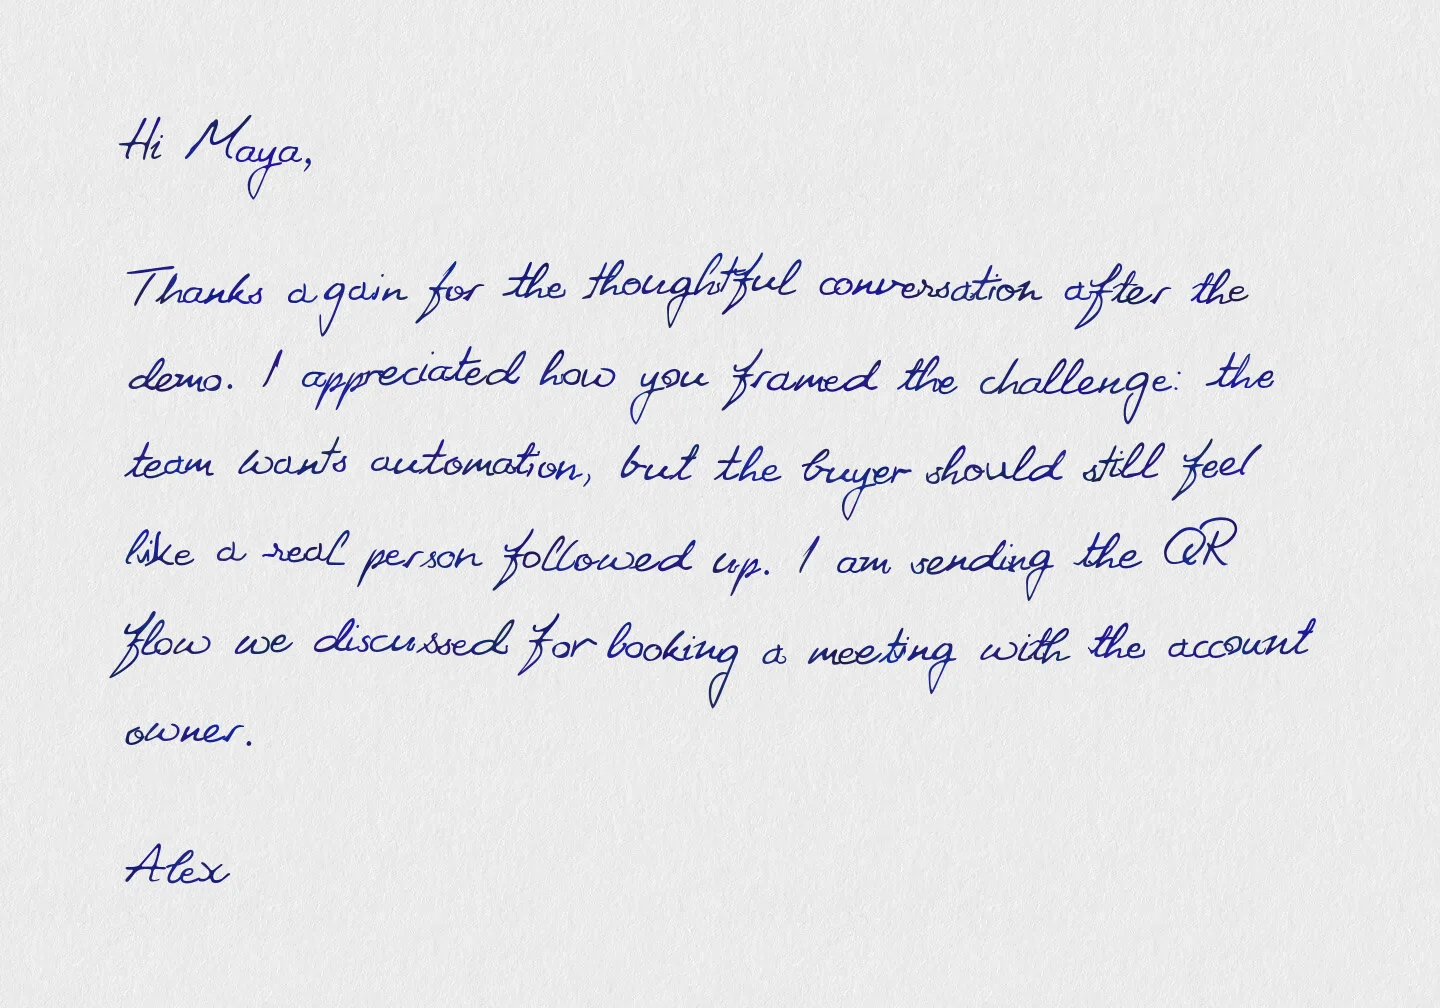 Hi Maya,
Thanks again for the thoughtful conversation after the
demo. I appreciated how you framed the challenge: the
team wants automation, but the buyer should still feel
like a real person followed up. I am sending the QR
flow we discussed for booking a meeting with the account
owner.
Alex